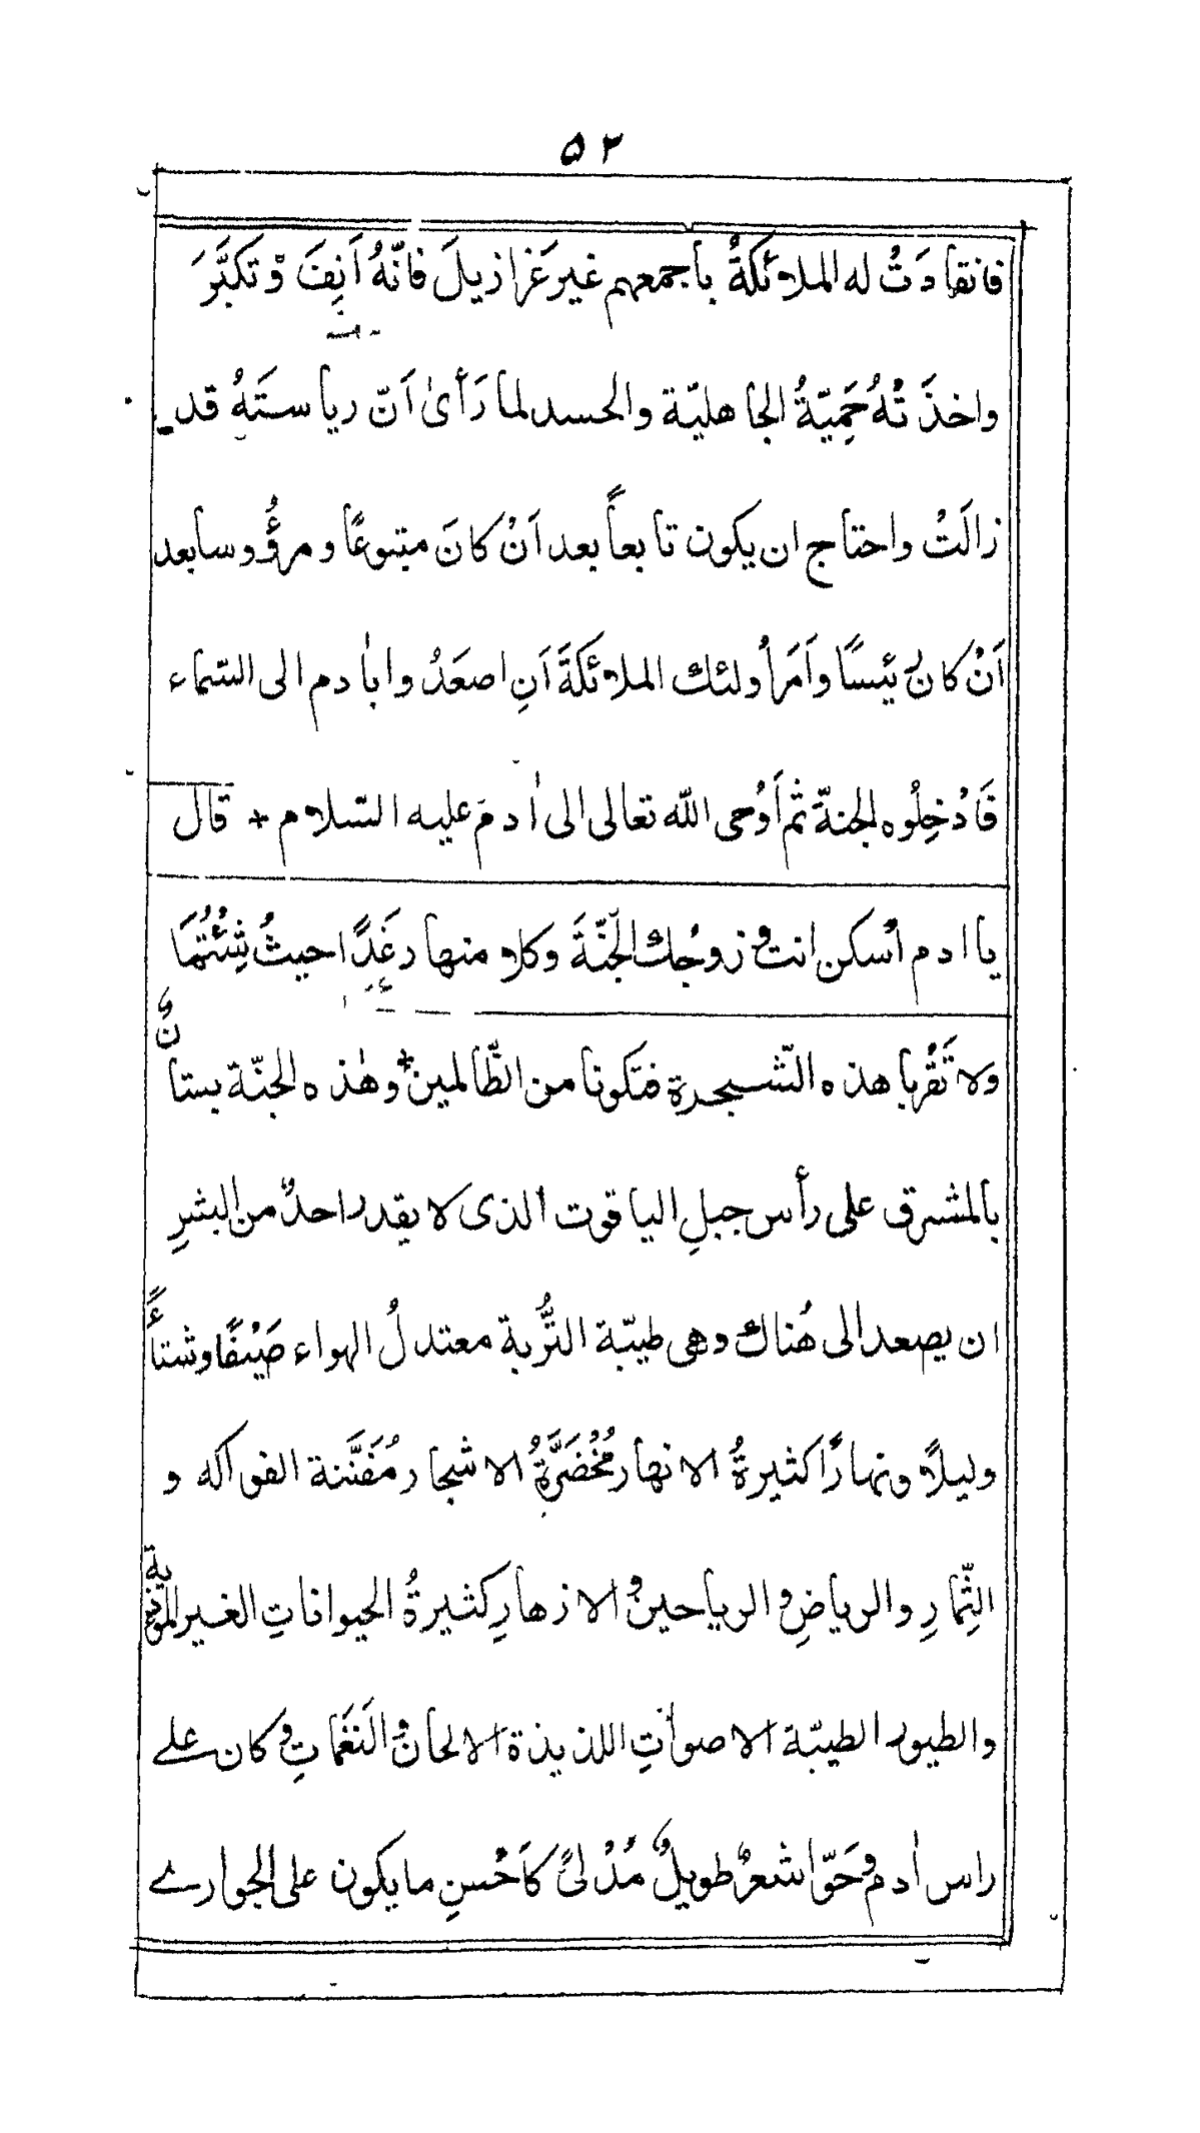 ٥٢
فانقادَتْ له الملائكةُ بأجمعهم غيرَ عَزازيلَ فانّهُ اَنِفَ وْتكبَّرَ
واخذَتْهُ حَمِيّةُ الجاهليّة والحسد لما رَأىٰ اَنّ رياستَهُ قد
زالَتْ واحتاج ان يكون تابعاً بعد اَنْ كانَ متبوعًا و مرؤُوسا بعد
اَنْ كان رئيسًا واَمَر اُولئك الملائكةَ اَنِ اصعَدُ وا باٰدم الى السّماء
فَادْخِلُوه لجنةّ ثم اَوْحى اللّه تعالى الى اٰدمَ عليه السّلام + قال
يا ادم اُسكن انت وزوجُك الجَنّةَ وكلا منها رغَدًا حيثُ شِئْتُمَا
ولا تَقْربا هذه الشّجرة فتكونا من الظّالمين + وهٰذه الجنّة بستانٌ
بالمشرق على رأس جبلِ الياقوت الذى لا يقدر احدٌ من البشرِ
ان يصعد الى هُناك وهى طيّبة التُّربة معتدلُ الهواء صَيْفًا وشتاءً
وليلاً ونهارًا كثيرةُ الانهار مُخْضَرَّةُ الاشجار مُفَنَّنة الفواكه و
الثِّمارِ والرياضِ والرياحين والازهارِ كثيرةُ الحيوانات الغير الموذية
والطيور الطيّبة الاصواتِ اللذيذة الالحان والنَغَماتِ وكان على
راس اٰدم وحَوّا شعرٌ طويلٌ مُدْلىً كاَحْسنِ ما يكون على الجوارى